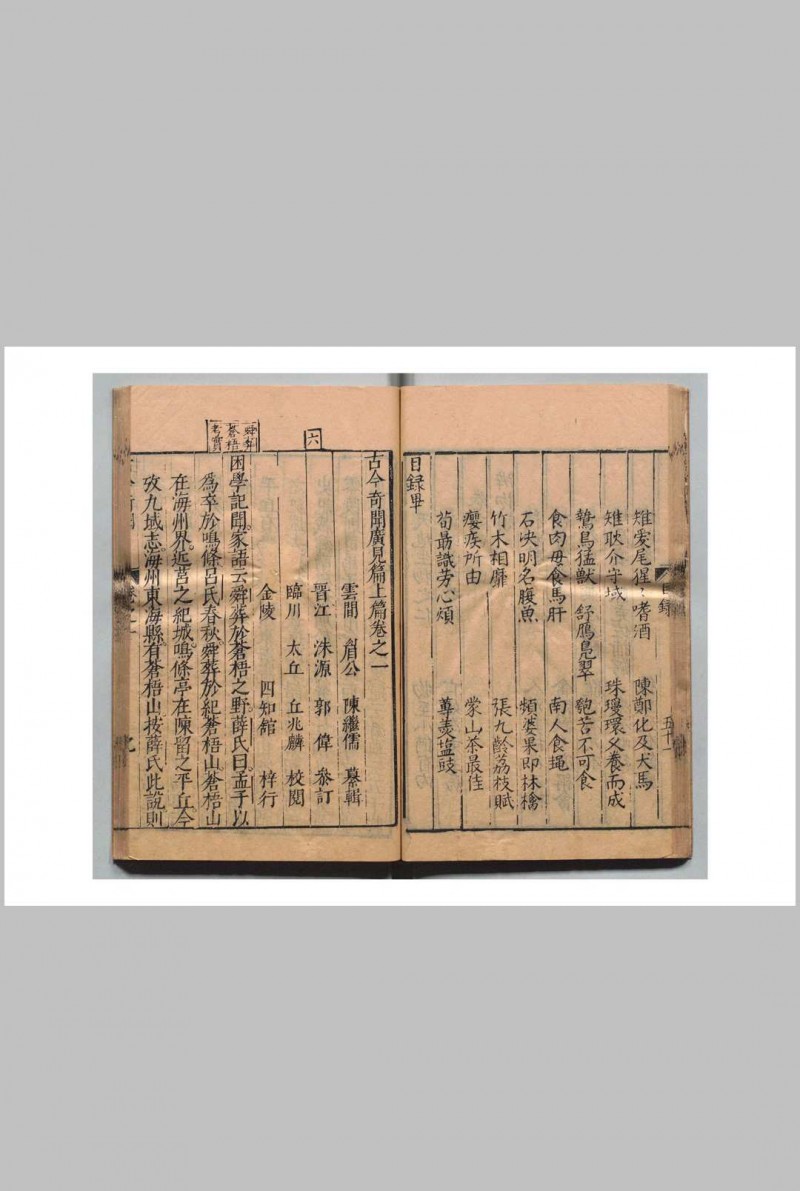 雉愛尾猩〻嗜酒　陳鄭化及犬馬
雉耿介守域　珠璣環又養而成
鷙鳥猛獸　舒鴈鳧翠　匏苦不可食
食肉毋食馬肝　南人食蠅
石决明名腹魚　頻婆果即林檎
竹木相靡　張九齡荔枝賦
癭疾所由　蒙山茶最佳
荀勗識芳心煩　蓴羹塩豉
目録畢
目録
五十一
古今奇聞廣見篇上篇卷之一
雲間　眉公　陳繼儒　纂輯
晋江　洙源　郭偉　叅訂
臨川　太丘　丘兆麟　校閲
金陵　四知舘　梓行
六
舜葬
蒼梧
考實
困學記聞家語云舜葬於蒼梧之野薛氏曰孟子以
為卒於鳴條吕氏春秋舜葬於紀蒼梧山蒼梧山
在海州界近莒之紀城鳴條亭在陳留之平丘今
攷九域志海州東海縣有蒼梧山按薛氏此說則